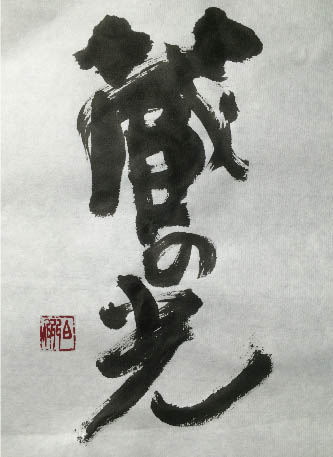 蔵の光